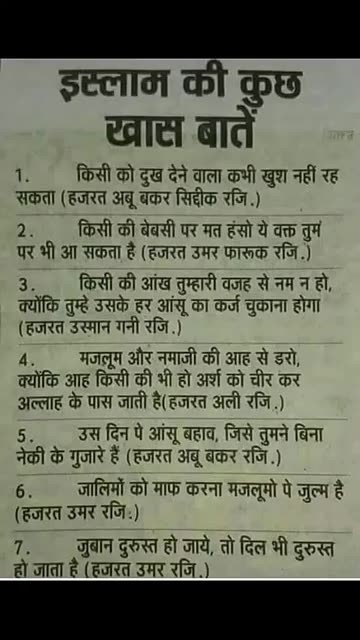 इस्लाम की कुछ
खास बातें
1. किसी को दुख देने वाला कभी खुश नहीं रह
सकता (हजरत अबू बकर सिद्दीक रजि.)
2. किसी की बेबसी पर मत हंसो ये वक्त तुम
पर भी आ सकता है (हजरत उमर फारूक रजि.)
3. किसी की आंख तुम्हारी वजह से नम न हो,
क्योंकि तुम्हे उसके हर आंसू का कर्ज चुकाना होगा
(हजरत उस्मान गनी रजि.)
4. मजलूम और नमाजी की आह से डरो,
क्योंकि आह किसी की भी हो अर्श को चीर कर
अल्लाह के पास जाती है(हजरत अली रजि.)
5. उस दिन पे आंसू बहाव, जिसे तुमने बिना
नेकी के गुजारे हैं (हजरत अबू बकर रजि.)
6. जालिमों को माफ करना मजलूमो पे जुल्म है
(हजरत उमर रजि.)
7. जुबान दुरुस्त हो जाये, तो दिल भी दुरुस्त
हो जाता है (हजरत उमर रजि.)